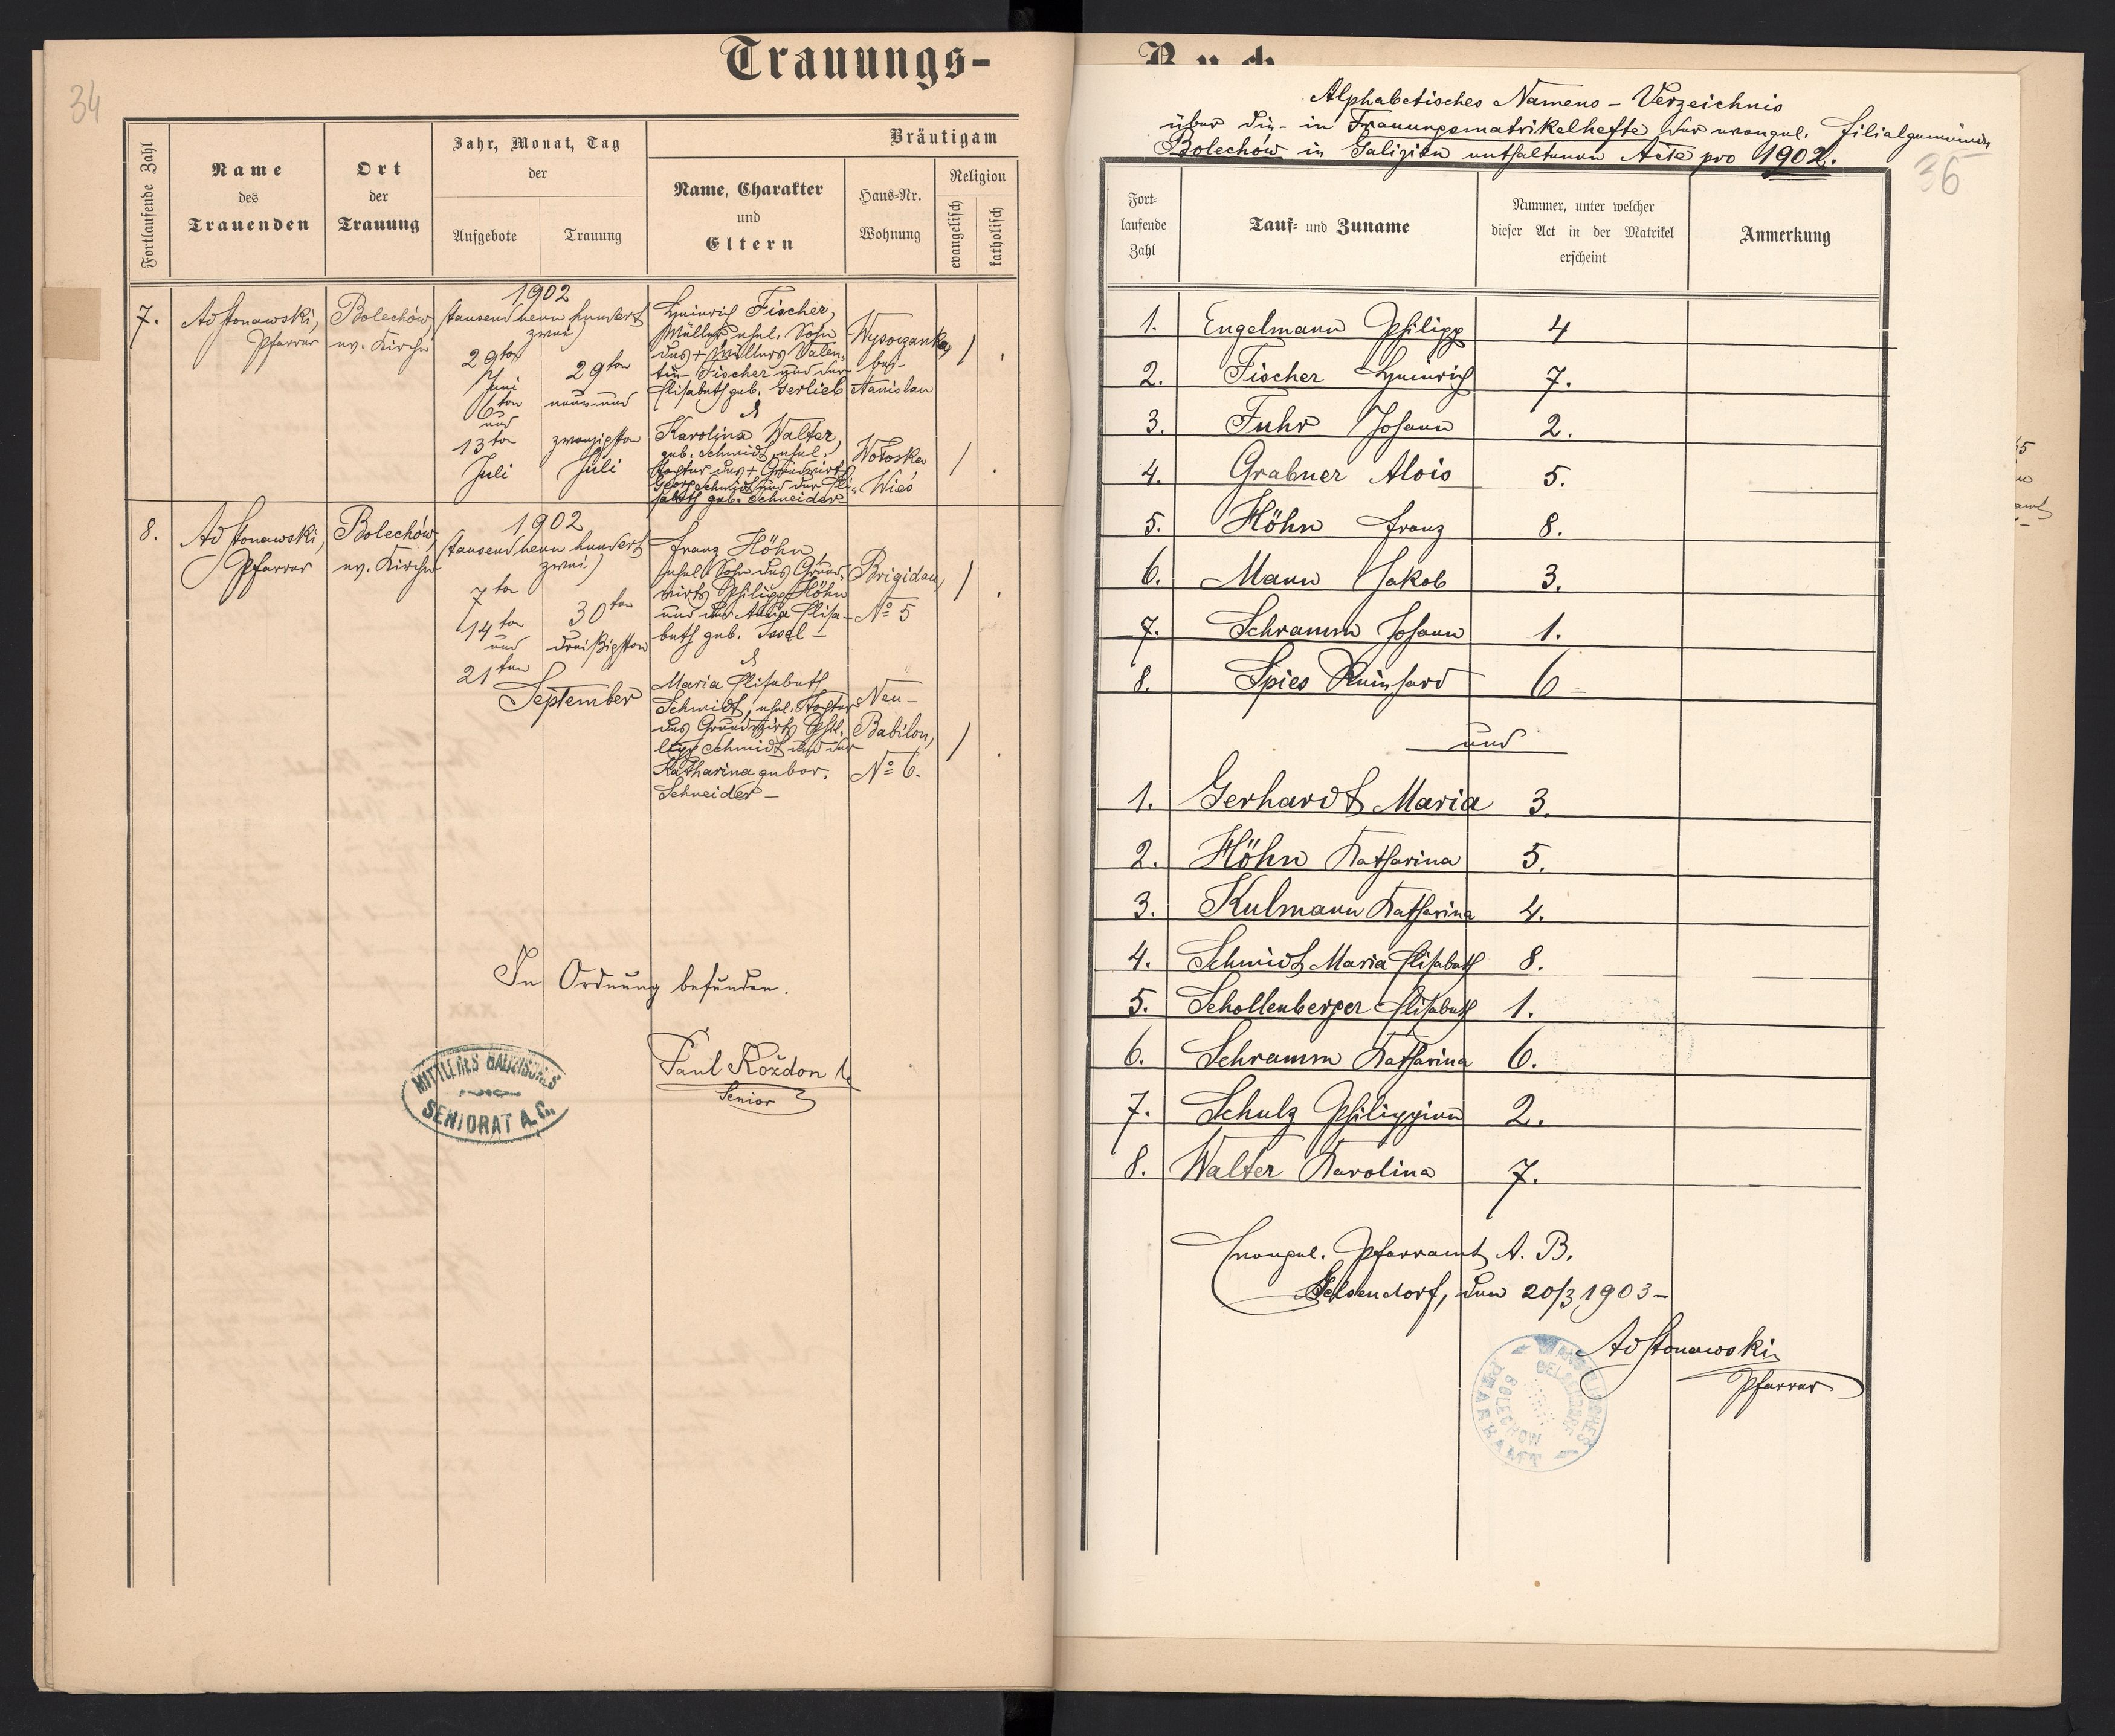 34
Trauungs-
Fortlaufende Zahl
Name
des
Trauenden
Ort
der
Trauung
Jahr, Monat, Tag
der
Aufgebote
Trauung
Bräutigam
Name, Charakter
und
Eltern
Haus-Nr.
Wohnung
Religion
evangelisch
katholisch
7.
Ad Stonawski,
Pfarrer
Bolechów,
ev. Kirche
1902
(tausend neun hundert
zwei)
29ten
Juni
6ten
und
13ten
Juli
29ten
neun und
zwanzigsten
Juli
Heinrich Fischer,
Müller, ehel. Sohn
des + Müllers Valen-
tin Fischer und der
Elisabeth geb. Gerlieb
&
Karolina Walter,
geb. Schmidt, ehel.
Tochter des + Grundwirts
Georg Schmidt und der Eli-
sabeth geb. Schneider
Wysoczanka
bei
Stanislau
Wołoska
Wieś
1
.
1
.
8.
Ad Stonawski,
Pfarrer
Bolechów,
ev. Kirche
1902
(tausend neun hundert
zwei)
7ten
14ten
und
21ten
30ten
dreißigsten
September
Franz Höhn,
ehel. Sohn des Grund-
wirts Philipp Höhn
und der Anna Elisa-
beth geb. Issel –
&
Maria Elisabeth
Schmidt, ehel. Tochter
des Grundwirts Phil-
lipp Schmidt und der
Katharina gebor.
Schneider –
Brigidau,
Nº 5
Neu-
Babilon,
Nº 6.
1
.
1
.
In Ordnung befunden.
Paul Kożdon
Senior
MITTLERES GALIZISCHES
SENIORAT A.C.
Buch
Alphabetisches Namens-Verzeichnis
über die in Trauungsmatrikelhefte der evangel. Filialgemeinde
Bolechów in Galizien enthaltenen Acte pro 1902.
36
Fort-
laufende
Zahl
Tauf- und Zuname
Nummer, unter welcher
dieser Act in der Matrikel
erscheint
Anmerkung
1. Engelmann Philipp 4
2. Fischer Heinrich 7.
3. Fuhr Johann 2.
4. Grabner Alois 5.
5. Höhn Franz 8.
6. Mann Jakob 3.
7. Schramm Johann 1.
8. Spies Reinhard 6
und
1. Gerhardt Maria 3.
2. Höhn Katharina 5.
3. Kulmann Katharina 4.
4. Schmidt Maria Elisabeth 8.
5. Schollenberger Elisabeth 1.
6. Schramm Katharina 6.
7. Schulz Philippine 2.
8. Walter Karolina 7.
Evangel. Pfarramt A. B.
Gelsendorf, den 20/3 1903 –
Ad Stonawski
Pfarrer
EVANGELISCHES
PFARRAMT
GELSENDORF
BOLECHOW